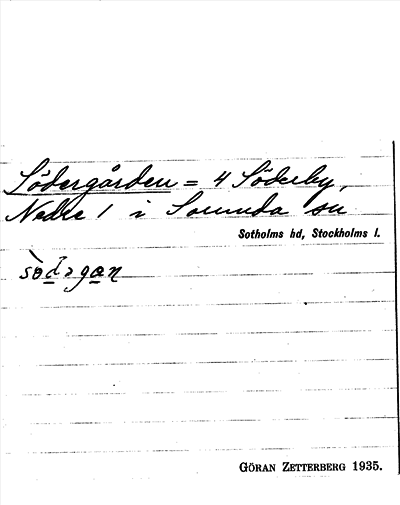 Södergården = 4 Söderby,
Nedre 1 i Sorunda sn
Sotholms hd, Stockholms l.
sòdəgan
GÖRAN ZETTERBERG 1935.